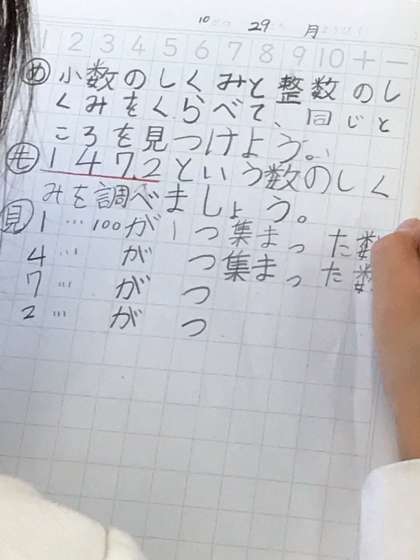 10 29 月
1 2 3 4 5 6 7 8 9 10 + −
め 小数のしくみと整数のし
くみをくらべて、同じと
ころを見つけよう。
も 1472という数のしく
みを調べましょう。
見 1…100が1つ集まった数
4… が つ集まった数
7… が つ
2… が つ